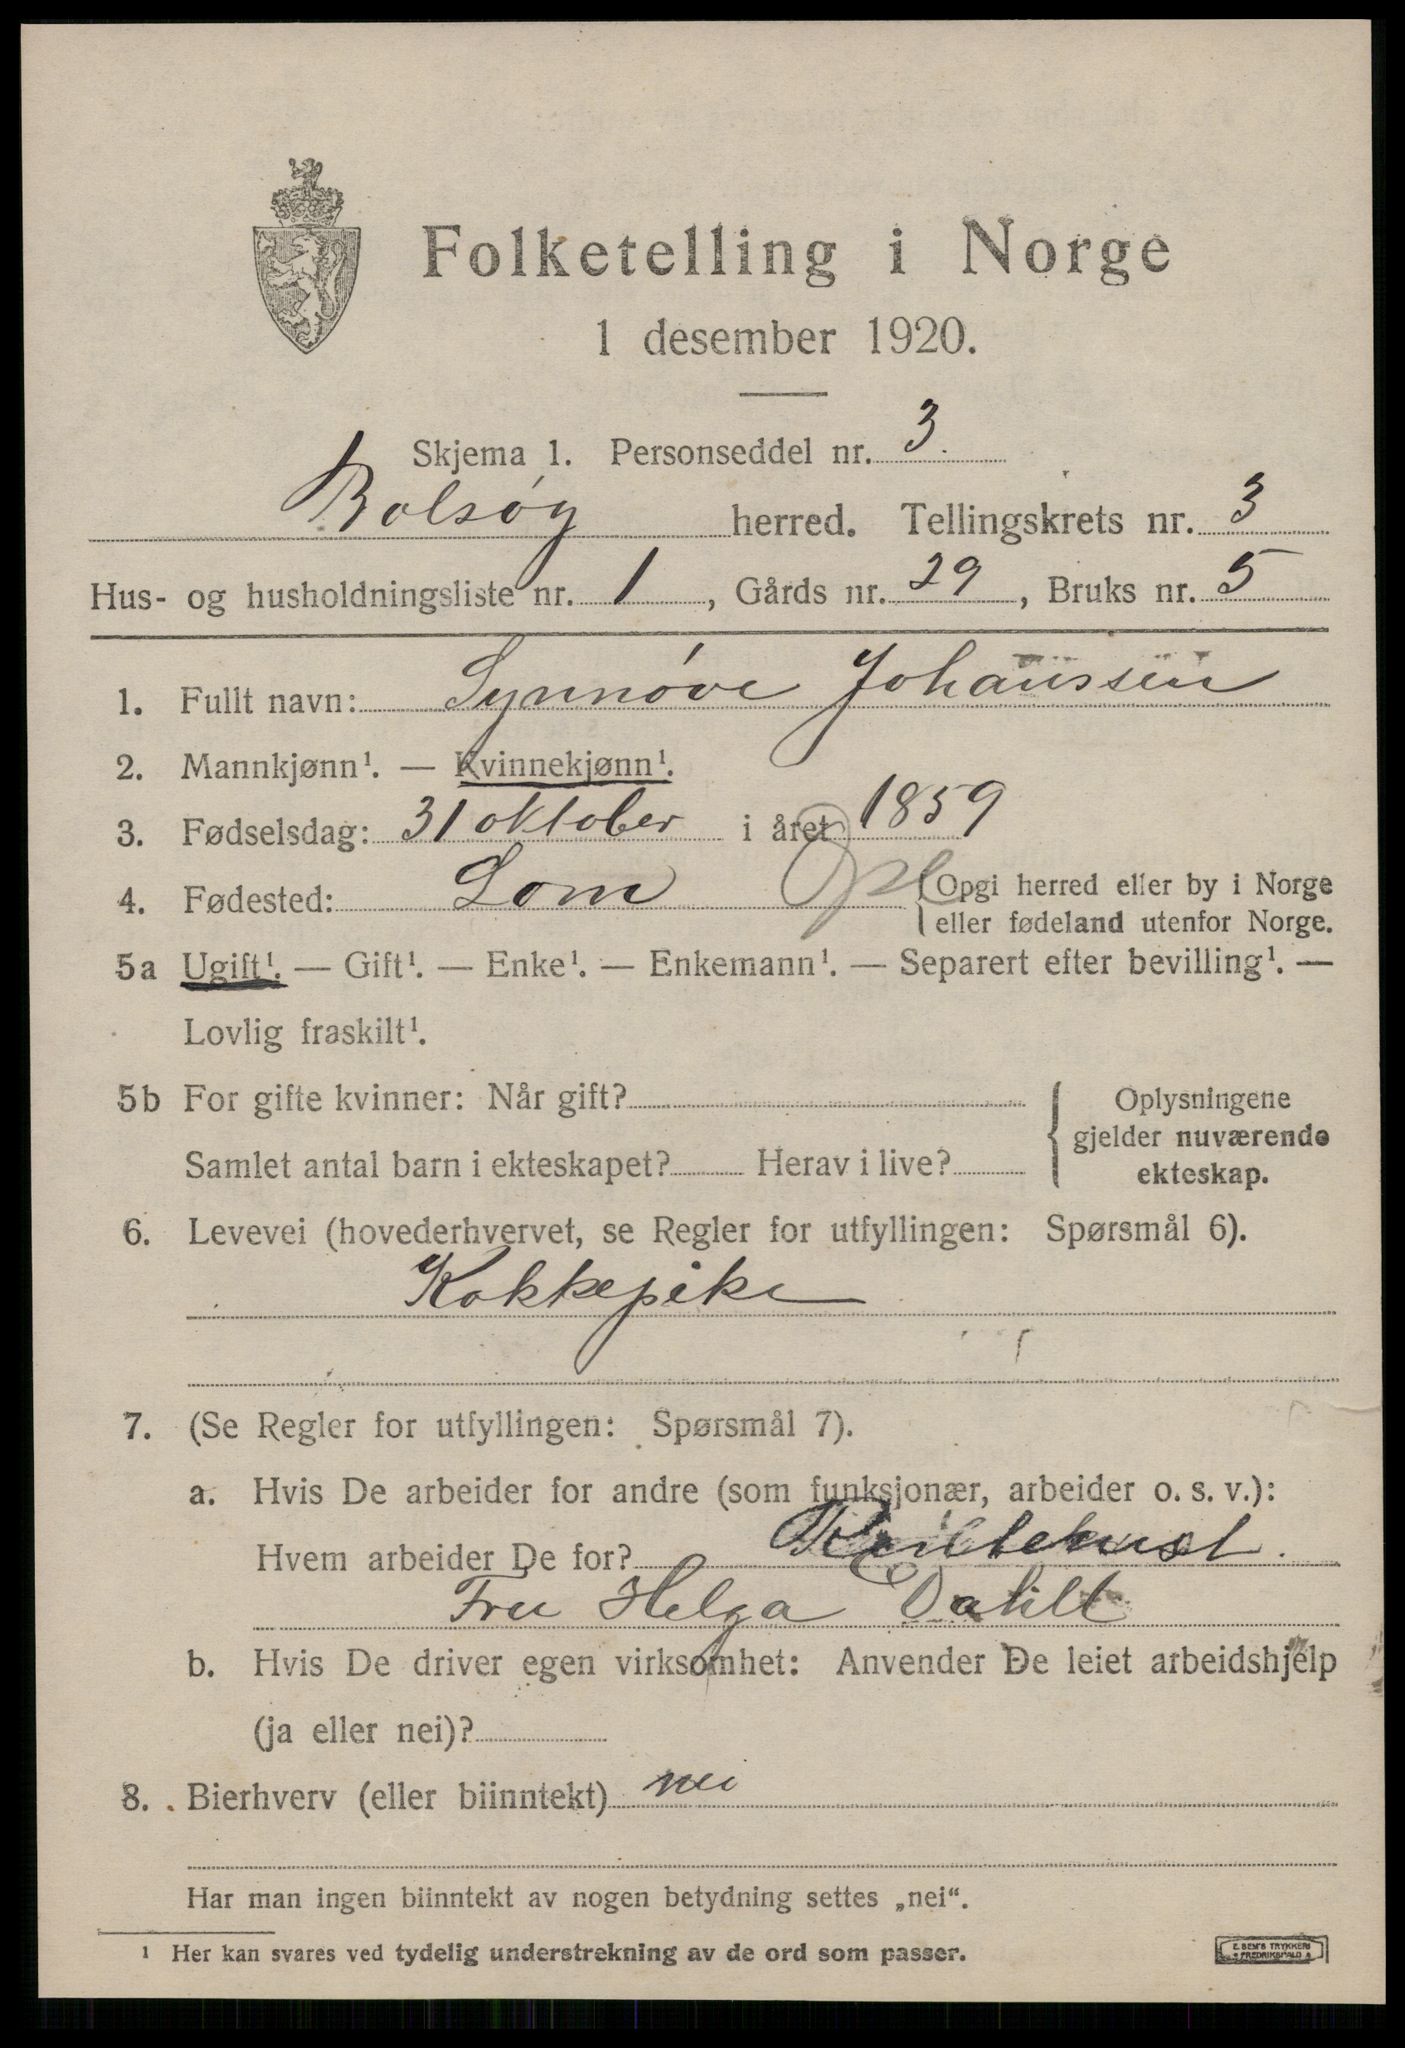 Folketelling i Norge
1 desember 1920.
Skjema 1. Personseddel nr. 3.
Bolsøy herred. Tellingskrets nr. 3
Hus- og husholdningsliste nr. 1, Gårds nr. 29, Bruks nr. 5
1. Fullt navn: Synnøve Johanssen
2. Mannkjønn¹. — Kvinnekjønn¹.
3. Fødselsdag: 31 oktober i året 1859
4. Fødested: Lom Opl {Opgi herred eller by i Norge
eller fødeland utenfor Norge.
5a Ugift¹. — Gift¹. — Enke¹. — Enkemann¹. — Separert efter bevilling¹. —
Lovlig fraskilt¹.
5b For gifte kvinner: Når gift? { Oplysningene
gjelder nuværende
Samlet antal barn i ekteskapet? Herav i live? ekteskap.
6. Levevei (hovederhvervet, se Regler for utfyllingen: Spørsmål 6).
Kokkepike
7. (Se Regler for utfyllingen: Spørsmål 7).
a. Hvis De arbeider for andre (som funksjonær, arbeider o. s. v.):
Hvem arbeider De for?
Fru Helga Dahl
b. Hvis De driver egen virksomhet: Anvender De leiet arbeidshjelp
(ja eller nei)?
8. Bierhverv (eller biinntekt) nei
Har man ingen biinntekt av nogen betydning settes „nei“.
¹ Her kan svares ved tydelig understrekning av de ord som passer.
E. SEM'S TRYKKERI
FREDRIKSHALD